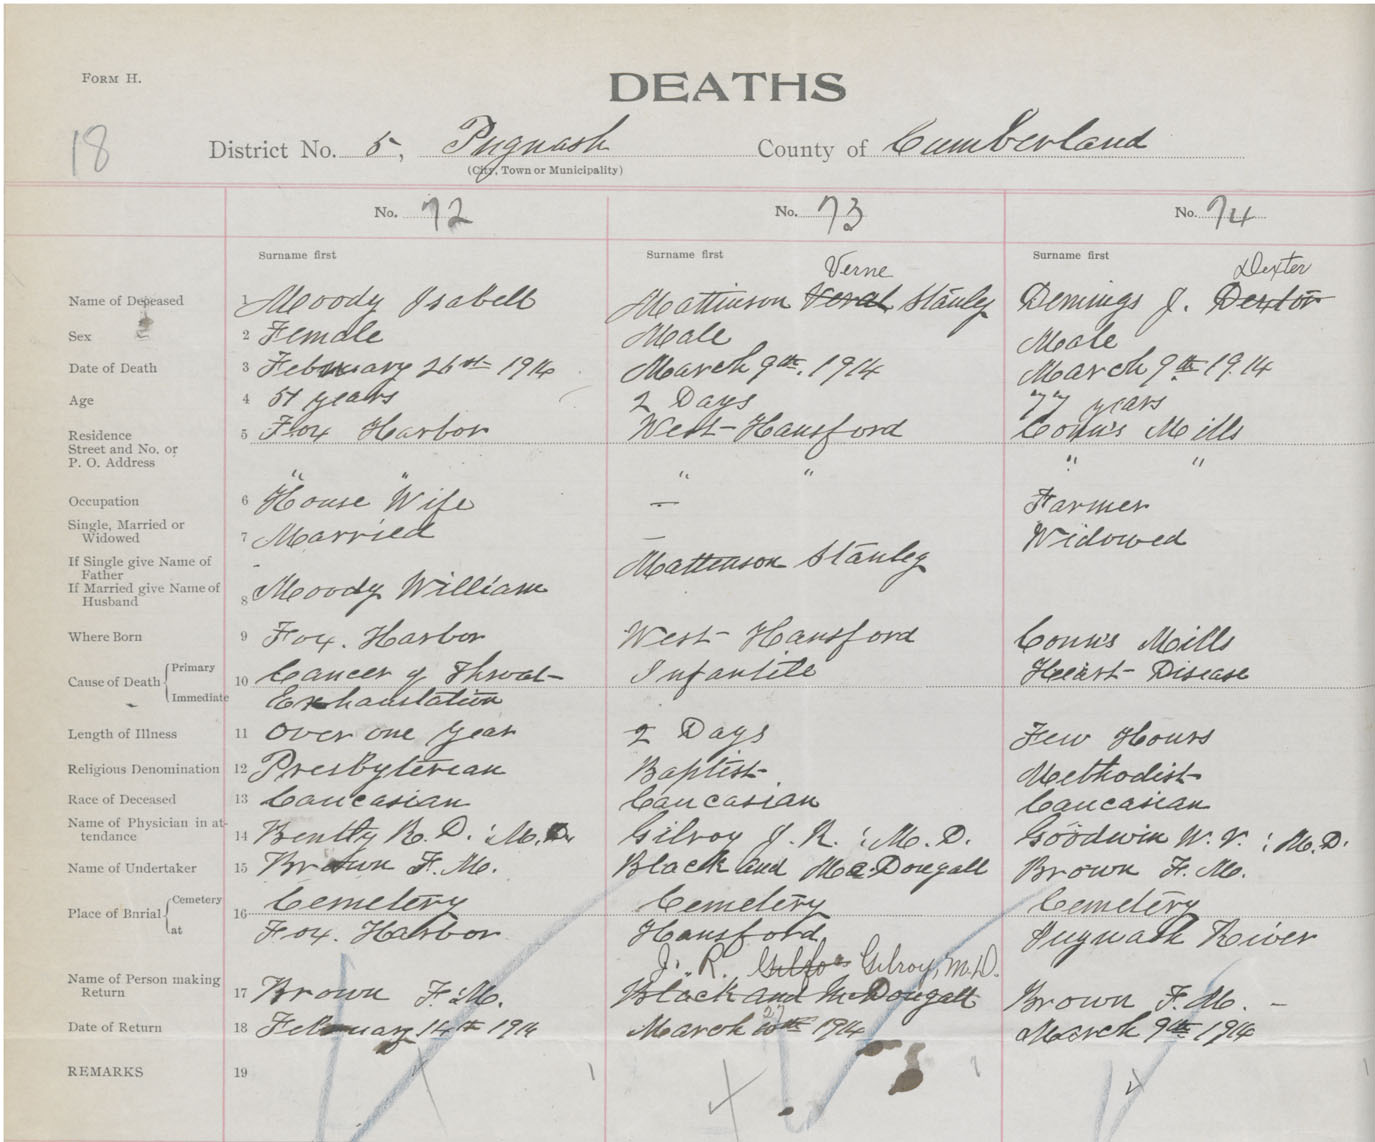 FORM H.
DEATHS
18
District No. 5, Pugwash County of Cumberland
(City, Town or Municipality)
No. 72 No. 73 No. 74
Surname first Surname first Surname first
Verne Dexter
Name of Deceased 1 Moody Isabell Mattinson Verat Stanley Demings J. Dextor
Sex 2 Female Male Male
Date of Death 3 February 26st 1914 March 9th. 1914 March 9th 1914
Age 4 51 years 2 Days 77 years
Residence 5 Fox Harbor West-Hansford Conn's Mills
Street and No. or
P. O. Address " " " " " "
Occupation 6 House Wife — Farmer
Single, Married or
Widowed 7 Married — Widowed
If Single give Name of
Father - Mattenson Stanley
If Married give Name of
Husband 8 Moody William
Where Born 9 Fox. Harbor West-Hansford Conn's Mills
Cause of Death { Primary 10 Cancer of Throat- Infantile Heart-Disease
Immediate Exhaustation
Length of Illness 11 Over one year 2 Days Few Hours
Religious Denomination 12 Presbyterian Baptist Methodist
Race of Deceased 13 Caucasian Caucasian Caucasian
Name of Physician in at-
tendance 14 Bently R. D. : M.D. Gilroy J. R. : M. D. Goodwin W. V. : M.D.
Name of Undertaker 15 Brown F. M. Black and McDougall Brown F. M.
Place of Burial { Cemetery 16 Cemetery Cemetery Cemetery
at Fox. Harbor Hansford Pugwash River
J. R. Gilroy, M.D.
Name of Person making
Return 17 Brown F. M. Black and McDougall Brown F. M. –
Date of Return 18 February 14th 1914 March 27 10th 1914 March 9th 1914
REMARKS 19